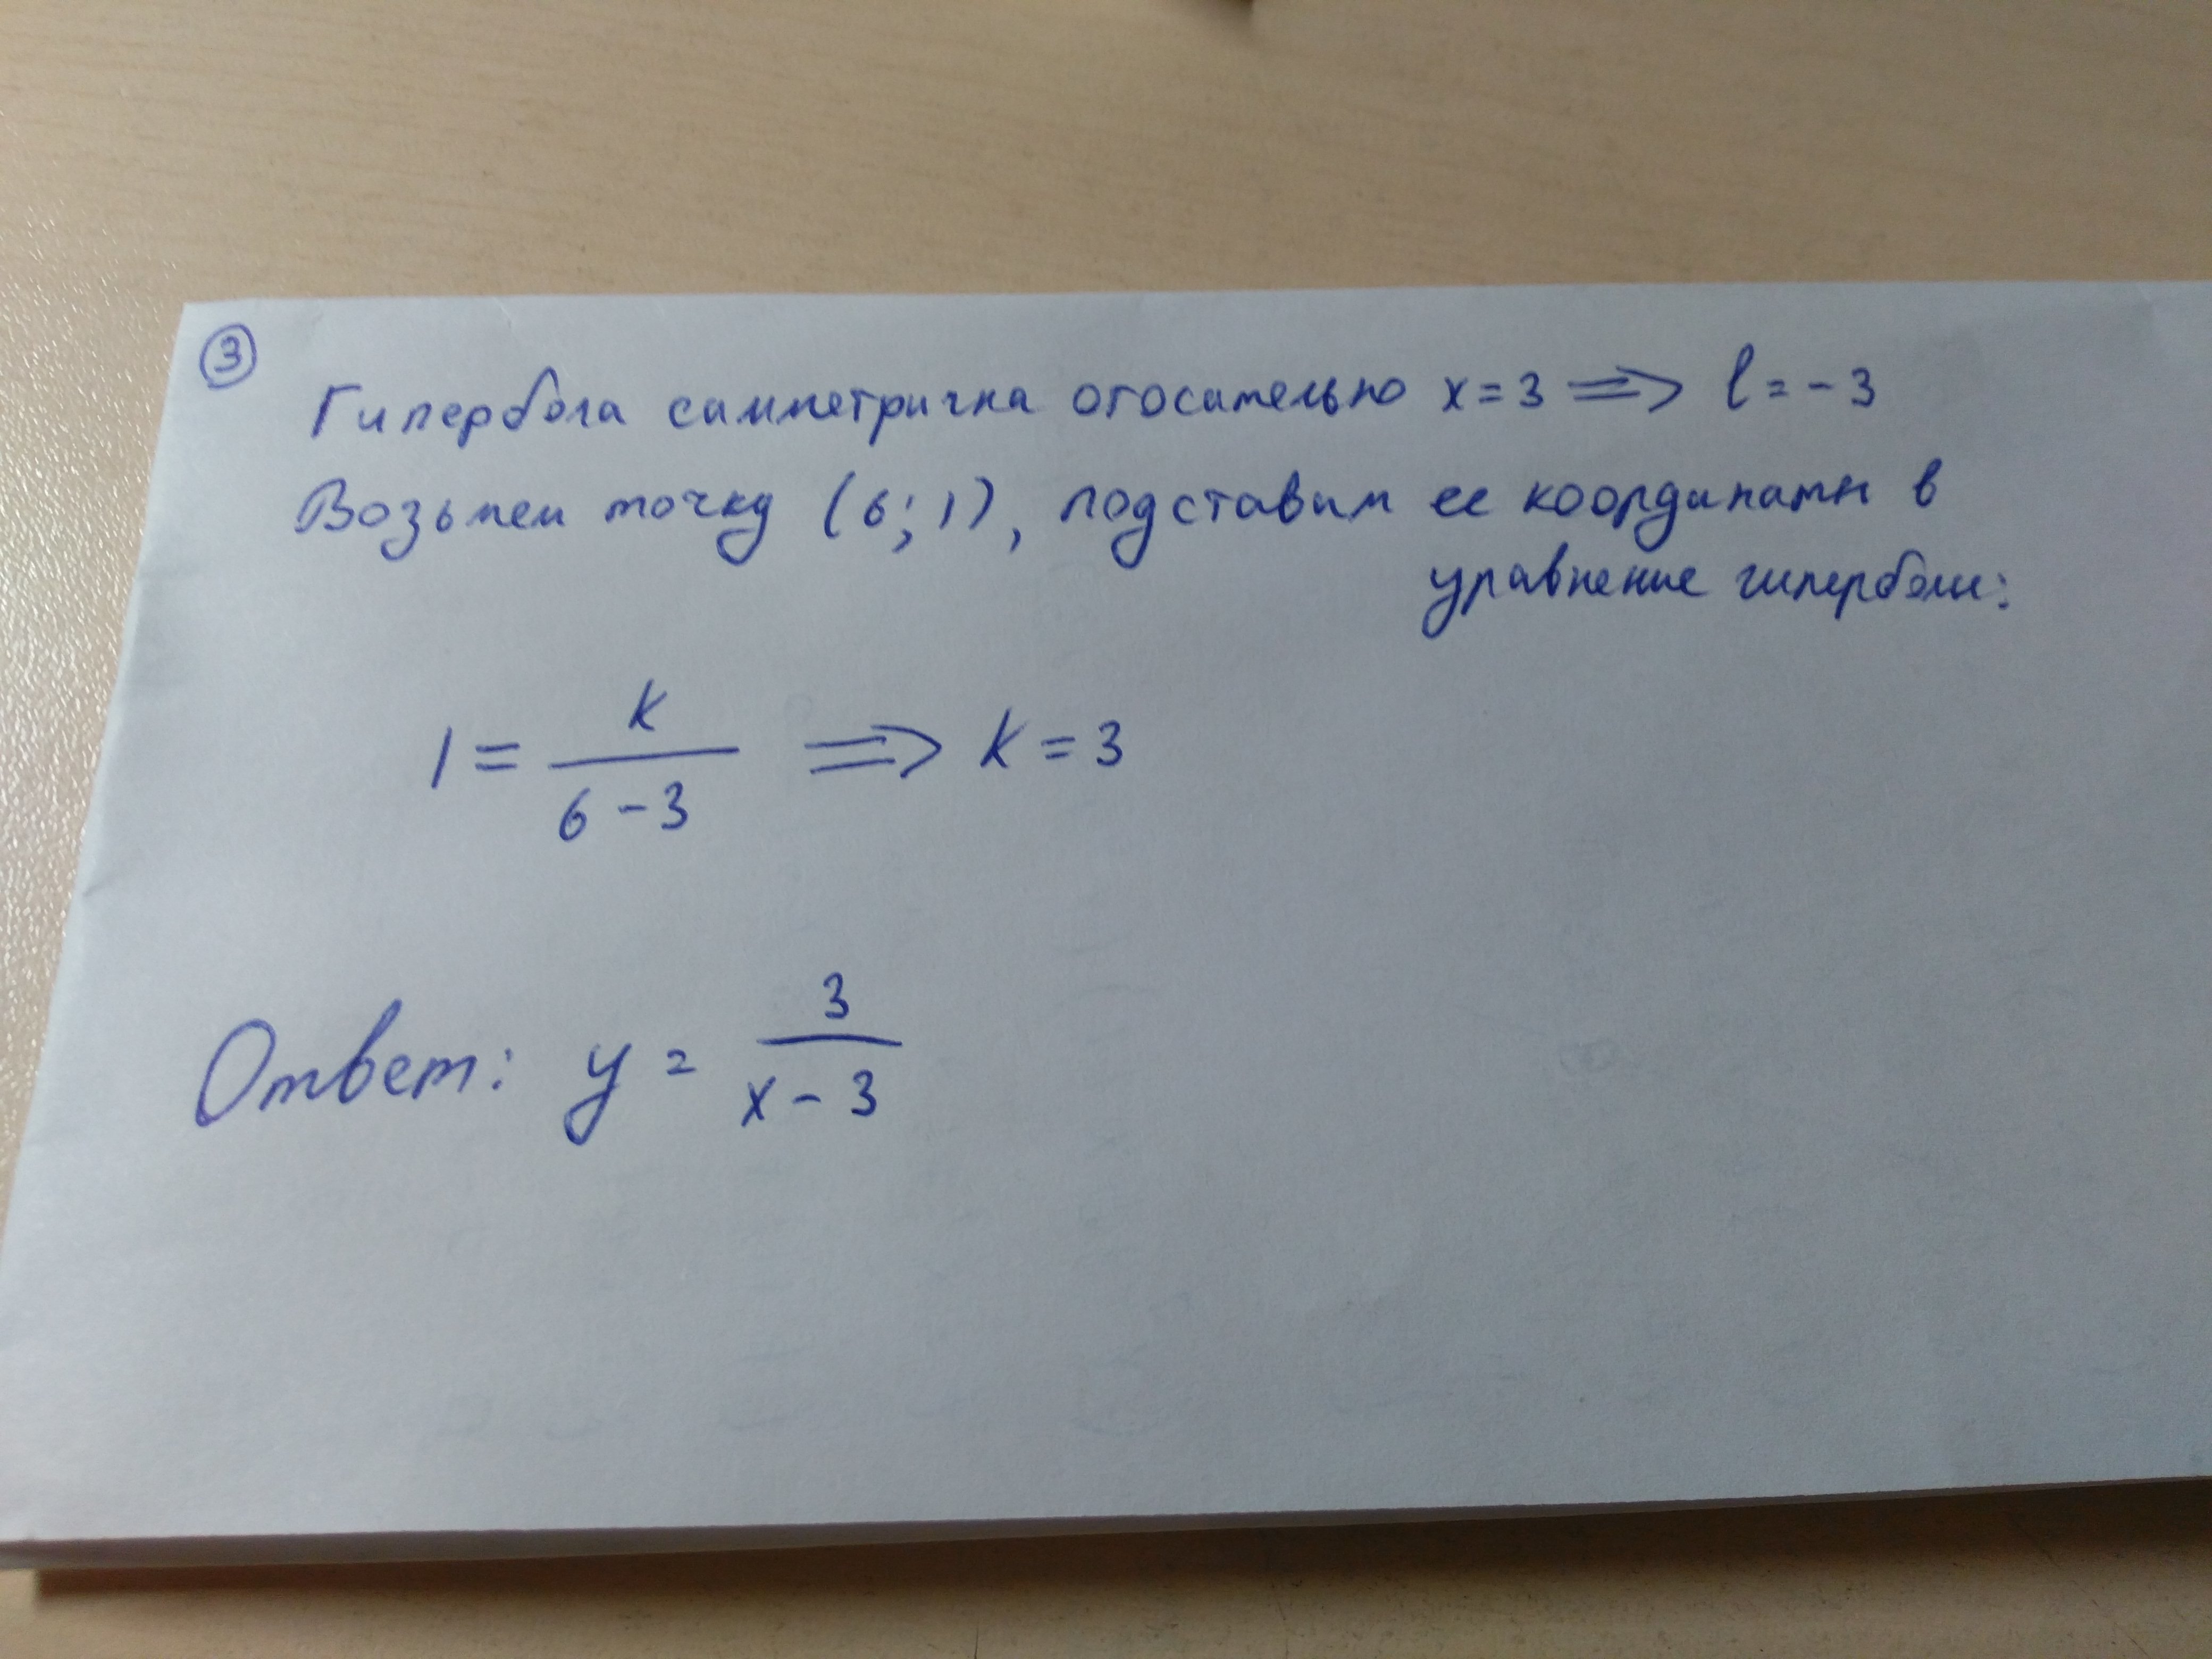 3
Гипербола симметрична отосительно x = 3 ⟹ l = -3
Возьмем точку (6; 1), подставим ее координаты в
уравнение гиперболы:
1 = k / (6 - 3) ⟹ k = 3
Ответ: y = 3 / (x - 3)